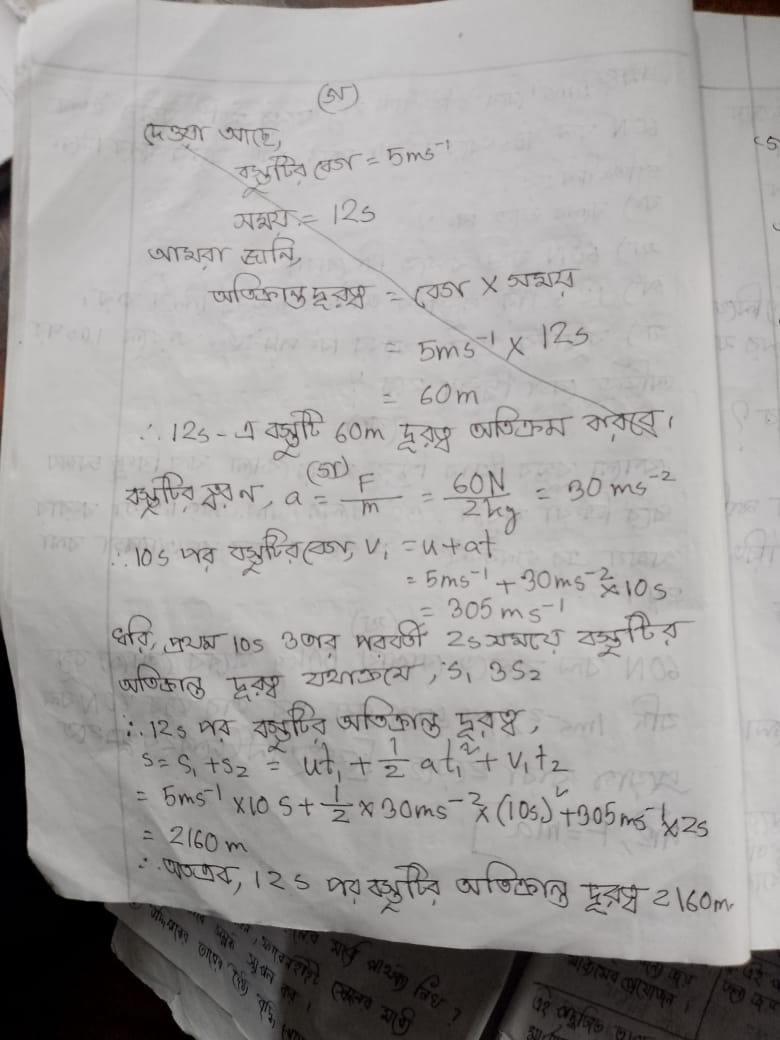 (গ)
দেওয়া আছে,
বস্তুটির বেগ = 5ms⁻¹
সময় = 12s
আমরা জানি,
অতিক্রান্ত দূরত্ব = বেগ × সময়
= 5ms⁻¹ × 12s
= 60m
∴ 12s-এ বস্তুটি 60m দূরত্ব অতিক্রম করবে।
(গ)
বস্তুটির ত্বরণ, a = F/m = 60N/2kg = 30 ms⁻²
∴ 10s পর বস্তুটির বেগ, v₁ = u+at
= 5ms⁻¹ + 30ms⁻² × 10s
= 305 ms⁻¹
ধরি, প্রথম 10s ও তার পরবর্তী 2s সময়ে বস্তুটির
অতিক্রান্ত দূরত্ব যথাক্রমে, s₁ ও s₂
∴ 12s পর বস্তুটির অতিক্রান্ত দূরত্ব,
s = s₁ + s₂ = ut₁ + ½ at₁² + v₁t₂
= 5ms⁻¹ × 10s + ½ × 30ms⁻² × (10s)² + 305ms⁻¹ × 2s
= 2160 m
∴ অতএব, 12s পর বস্তুটির অতিক্রান্ত দূরত্ব 2160m